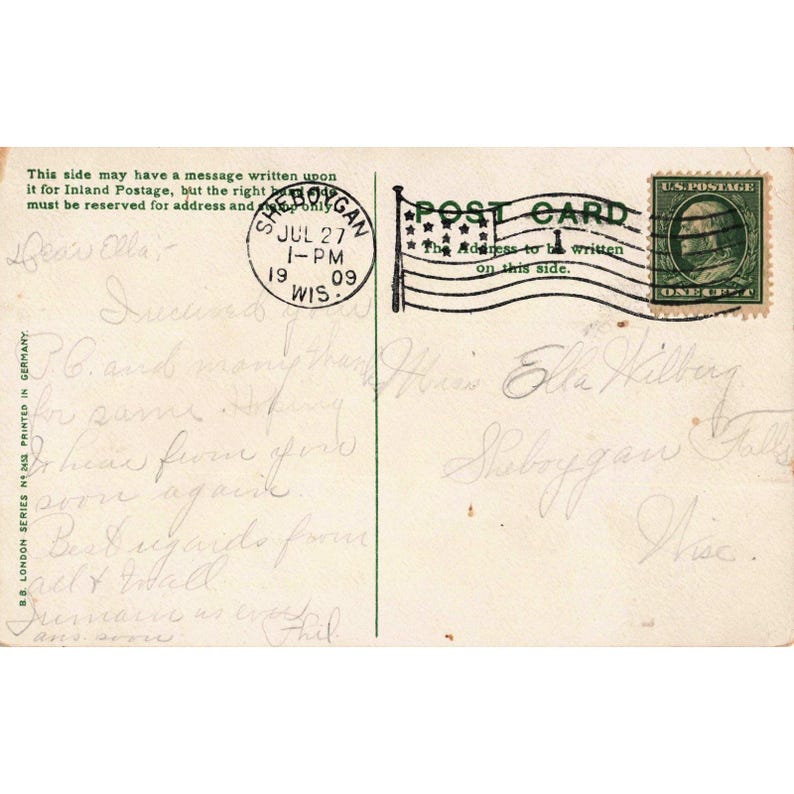 This side may have a message written upon
it for Inland Postage, but the right hand side
must be reserved for address and stamp only.
SHEBOYGAN
JUL 27
1-PM
1909
WIS.
POST CARD
1
The Address to be written
on this side.
U.S. POSTAGE
ONE CENT
Dear Ella,-
I received your
P.C. and many thanks
for same. Hoping
to hear from you
soon again.
Best regards from
all to all
I remain as ever
ans. soon Phil.
Miss Ella Wilberg
Sheboygan Falls
Wisc.
B.B. LONDON SERIES No 2453 PRINTED IN GERMANY.